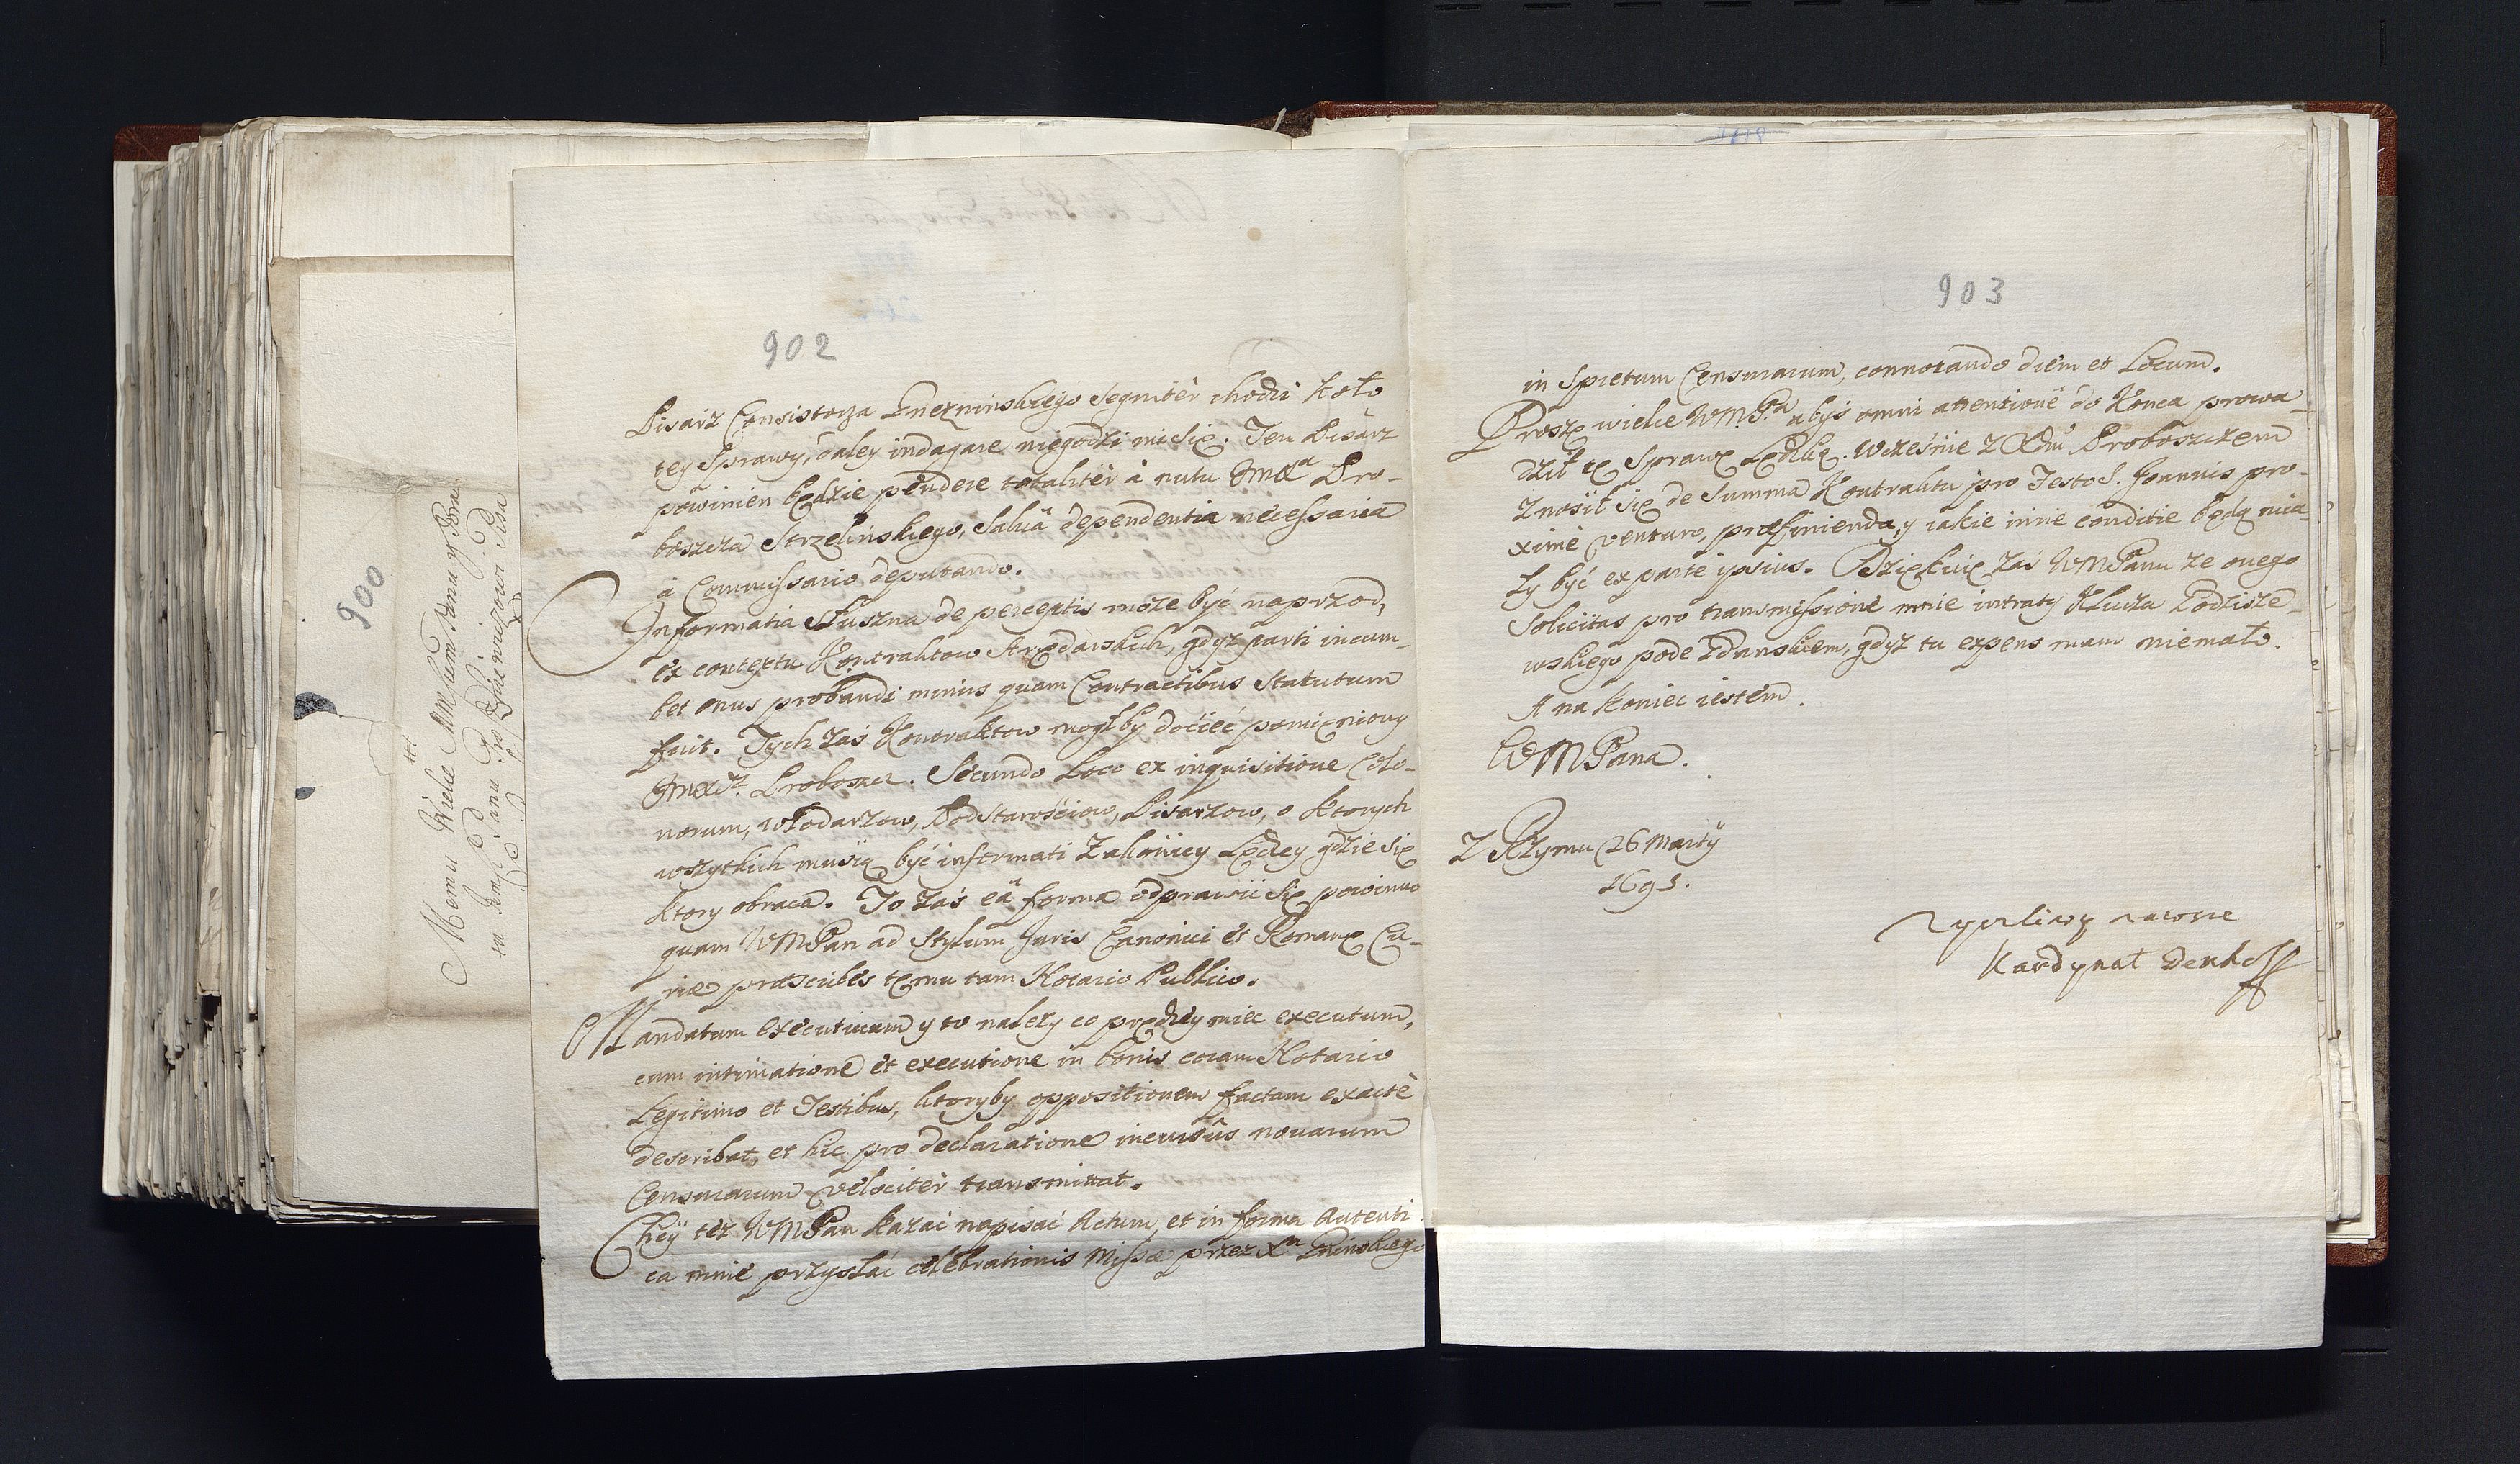 900
Memu Wielce
Panu y
902
Pisarz Consistorza Gniezninskiego segniter chodzi koło
tey sprawy, daley indagare niegodzi mi się. Ten Pisarz
powinien będzie pendere totaliter à nutu Pro-
boszcza Strzelinskiego, salvâ dependentia necessaria
à Commissario deputando.
Informatia słuszna de perceptis może być naprzod,
ex contextu Kontraktow Arędarskich, gdyż parti incum-
bet onus probandi minus quam Contractibus statutum
fuit. Tych zas Kontraktow mogłby dociec pomieniony
Proboszcz. Secundo Loco ex inquisitione Colo-
norum, włodarzow, Podstarościow, Pisarzow, o ktorych
wszytkich muszą być informati Zakonicy Lędzcy gdzie się
ktory obraca. To zaś eâ forma odprawić się powinno
quam WMPan ad Stylum Juris Canonici et Romanæ Cu-
riæ præscribes temu tam Notario Publico.
Mandatum executivum y to należy co prędzey miec executum,
cum intimatione et executione in bonis coram Notario
Legitimo et Testibus, ktoryby oppositionem factam exactè
describat, et hic pro declaratione incursûs novarum
Censurarum velociter transmittat.
Chciy też WMPan kazać napisać Actum, et in forma Autenti-
ca mnie przysłać celebrationis Missæ przez Xa Gninskiego
903
in spretum Censurarum, connotando diem et Locum.
Proszę wielce WMPa abyś omni attentione do konca prowa-
dził tę sprawę Lędzką. Wcześnie z Proboszczem
znosił się de Summa Kontraktu pro Festo S. Joannis pro-
ximè venturo, præfinienda, y iakie inne conditie będą mia-
ły być ex parte ipsius. Dziękuię zaś WMPanu ze onego
solicitas pro transmissione mnie intraty Klucza
wskiego pode Gdanskiem, gdyż tu expens mam niemało.
A na koniec iestem.
WMPana.
Z Rzymu 26 Martij
1693.
zyczliwy zawsze
Kardynał Denhoff